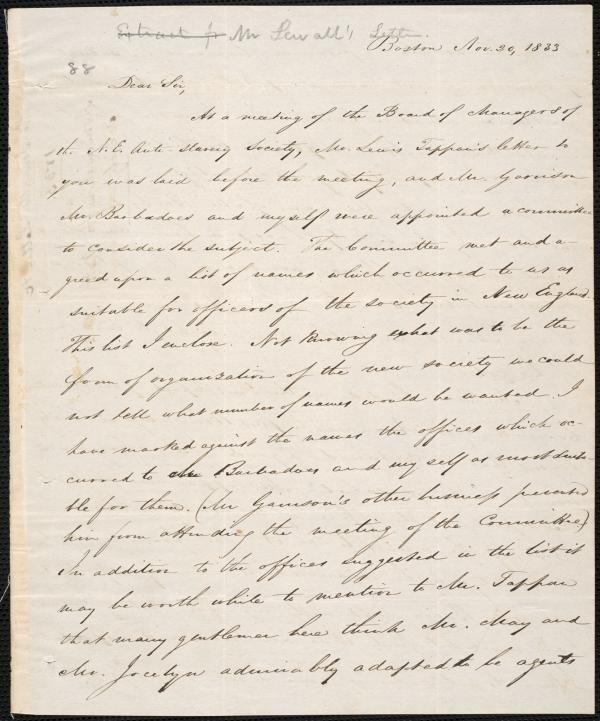 Extract fr Mr Sewall's Letter
Boston Nov. 20, 1833
88
Dear Sir,
At a meeting of the Board of Managers of
the N. E. Anti-slavery Society, Mr. Lewis Tappan's letter to
you was laid before the meeting, and Mr. Garrison
Mr. Barbadoes and myself were appointed a committee
to consider the subject. The Committee met and a-
greed upon a list of names which occurred to us as
suitable for officers of the society in New England.
This list I enclose. Not knowing what was to be the
form of organization of the new society we could
not tell what number of names would be wanted. I
have marked against the names the offices which oc-
curred to Mr Barbadoes and my self as most suita-
ble for them. (Mr Garrison's other business prevented
him from attending the meeting of the Committee)
In addition to the offices suggested in the list it
may be worth while to mention to Mr. Tappan
that many gentlemen here think Mr. May and
Mr. Jocelyn admirably adapted to be agents